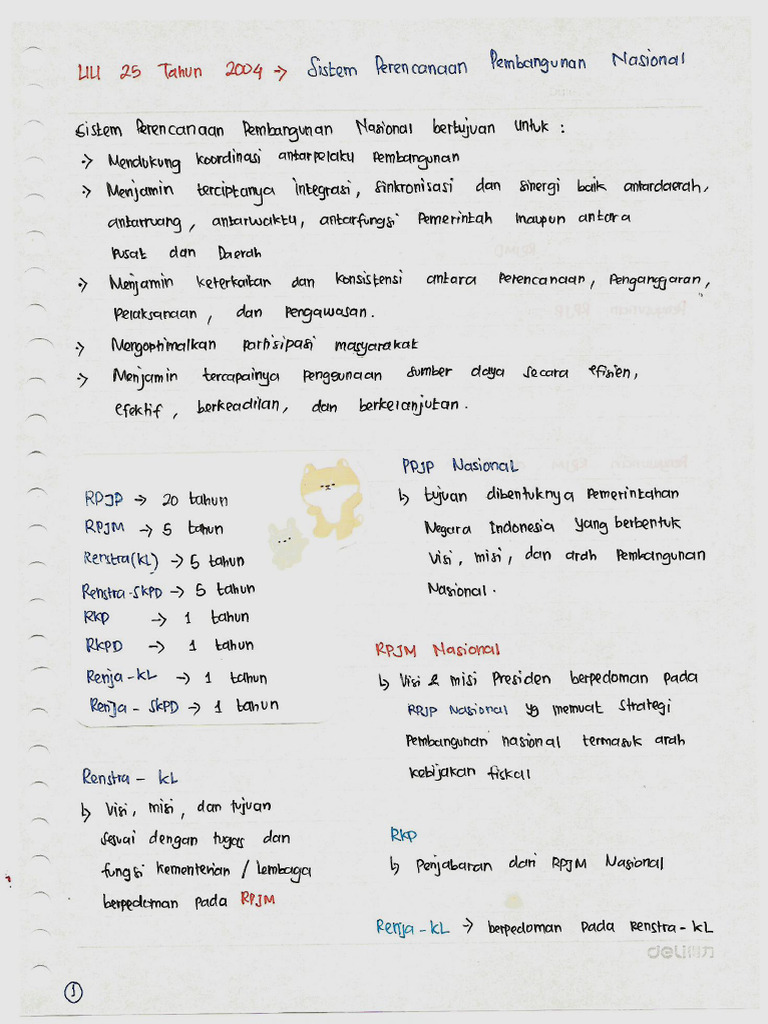 UU 25 Tahun 2004 → Sistem Perencanaan Pembangunan Nasional
Sistem Perencanaan Pembangunan Nasional bertujuan untuk :
→ Mendukung koordinasi antarpelaku pembangunan
→ Menjamin terciptanya integrasi, sinkronisasi dan sinergi baik antardaerah,
antarruang, antarwaktu, antarfungsi pemerintah maupun antara
Pusat dan Daerah
→ Menjamin keterkaitan dan konsistensi antara perencanaan, penganggaran,
pelaksanaan, dan pengawasan.
→ Mengoptimalkan partisipasi masyarakat
→ Menjamin tercapainya penggunaan sumber daya secara efisien,
efektif, berkeadilan, dan berkelanjutan.
RPJP → 20 tahun
RPJM → 5 tahun
Renstra(KL) → 5 tahun
Renstra-SKPD → 5 tahun
RKP → 1 tahun
RKPD → 1 tahun
Renja-KL → 1 tahun
Renja-SKPD → 1 tahun
Renstra - KL
↳ Visi, misi, dan tujuan
sesuai dengan tugas dan
fungsi kementerian / lembaga
berpedoman pada RPJM
PPJP Nasional
↳ tujuan dibentuknya pemerintahan
Negara Indonesia yang berbentuk
visi, misi, dan arah pembangunan
Nasional.
RPJM Nasional
↳ Visi & misi Presiden berpedoman pada
RPJP Nasional yg memuat strategi
pembangunan nasional termasuk arah
kebijakan fiskal
RKP
↳ Penjabaran dari RPJM Nasional
Renja-KL → berpedoman pada Renstra-KL
deli得力
1